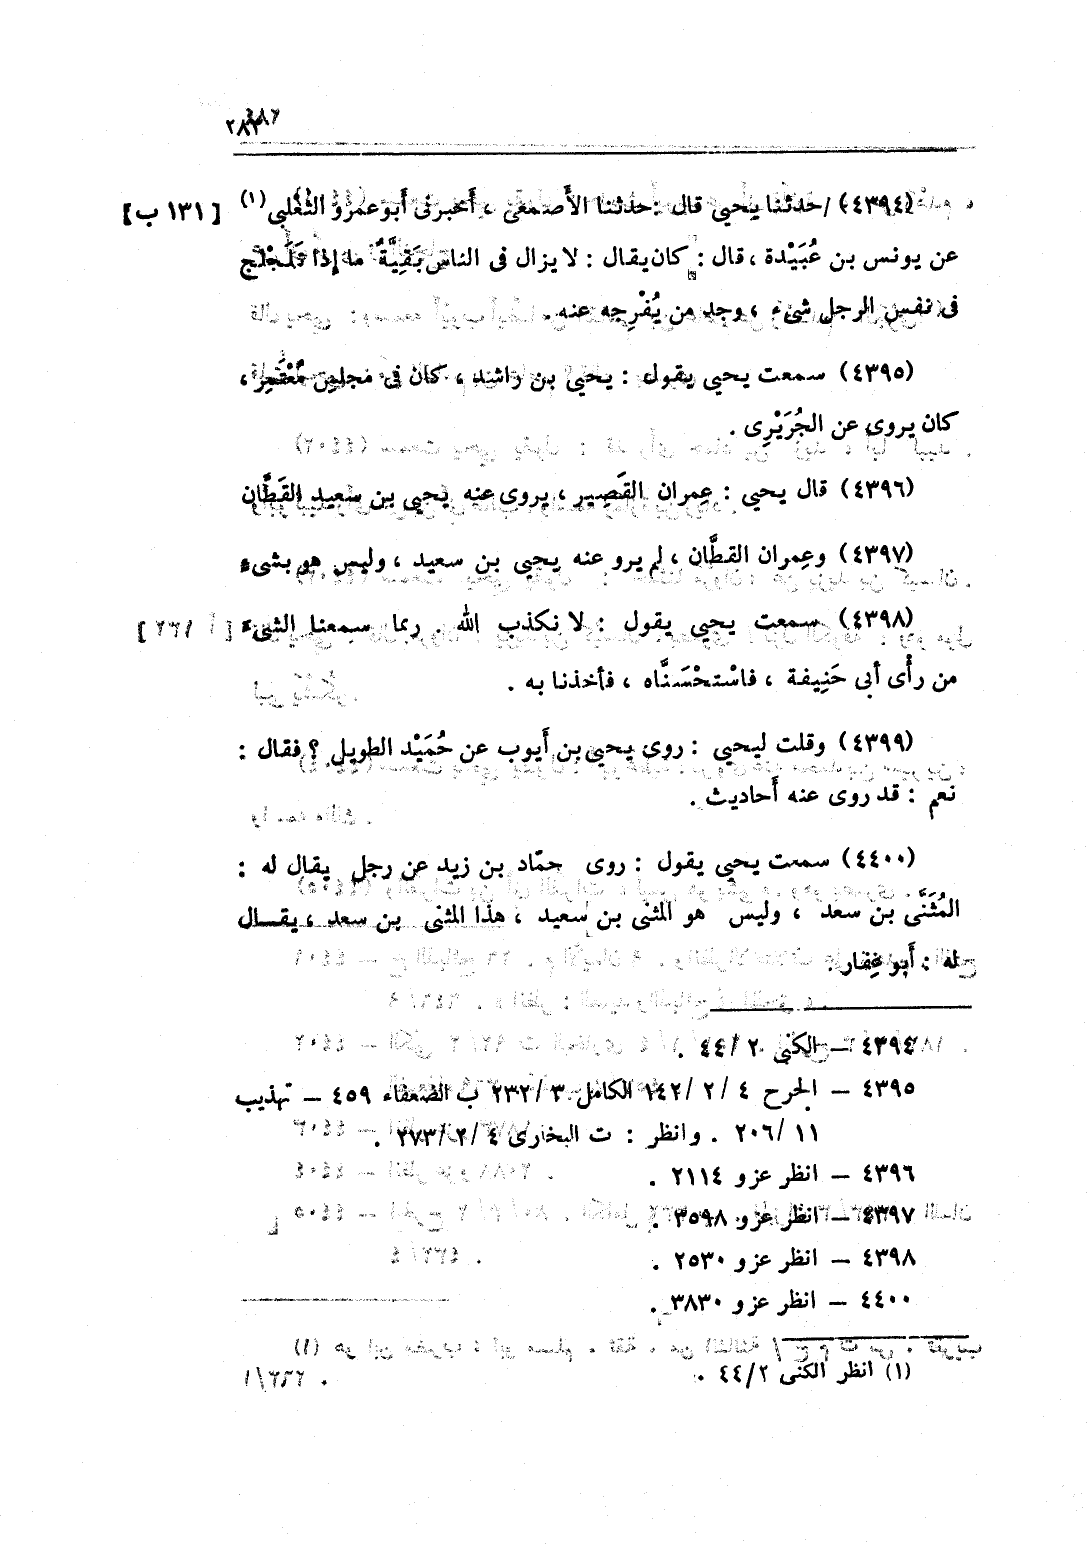 ٢٨٣
(٤٣٩٤) / حدثنا يحيي قال : حدثنا الأَصمعي ، أَخبرنى أَبوعمرو الثَّعْلبي (١) [ ١٣١ ب ]
عن يونس بن عُبَيْدة ، قال : كان يقال : لا يزال فى الناس بَقِيَّةٌ ما إذا تَلَجْلَج
فى نفس الرجل شىء ، وجد من يُفْرِجه عنه .
(٤٣٩٥) سمعت يحيي يقول : يحيي بن راشد ، كان فى مجلس مُعْتَمِر ،
كان يروى عن الجُرَيْرِى .
(٤٣٩٦) قال يحيي : عِمران القَصِير ، يروى عنه يحيي بن سعيد القَطَّان
(٤٣٩٧) وعِمران القطَّان ، لم يرو عنه يحيي بن سعيد ، وليس هو بشىء
(٤٣٩٨) سمعت يحيي يقول : لا نكذب الله ربما سمعنا الشىء
من رأْى أبى حَنِيفة ، فاسْتحْسَنَّاه ، فأخذنا به .
(٤٣٩٩) وقلت ليحيي : روى يحيي بن أَيوب عن حُمَيْد الطويل ؟ فقال :
نعم : قد روى عنه أَحاديث .
(٤٤٠٠) سمعت يحيي يقول : روى حمّاد بن زيد عن رجل يقال له :
المُثَنَّى بن سعد ، وليس هو المثنى بن سعيد ، هذا المثنى بن سعد ، يقال
له : أَبو غِفار .
٤٣٩٤ – الكنى ٢ /٤٤ .
٤٣٩٥ – الجرح ٤ /٢ /١٤٢ الكامل ٣ /٢٣٢ ب الضعفاء ٤٥٩ – تهذيب
١١ /٢٠٦ . وانظر : ت البخارى ٤ /٢ /٢٧٣ .
٤٣٩٦ – انظر عزو ٢١١٤ .
٤٣٩٧ – انظر عزو ٣٥٩٨ .
٤٣٩٨ – انظر عزو ٢٥٣٠ .
٤٤٠٠ – انظر عزو ٣٨٣٠ .
(١) انظر الكنى ٢ /٤٤ .